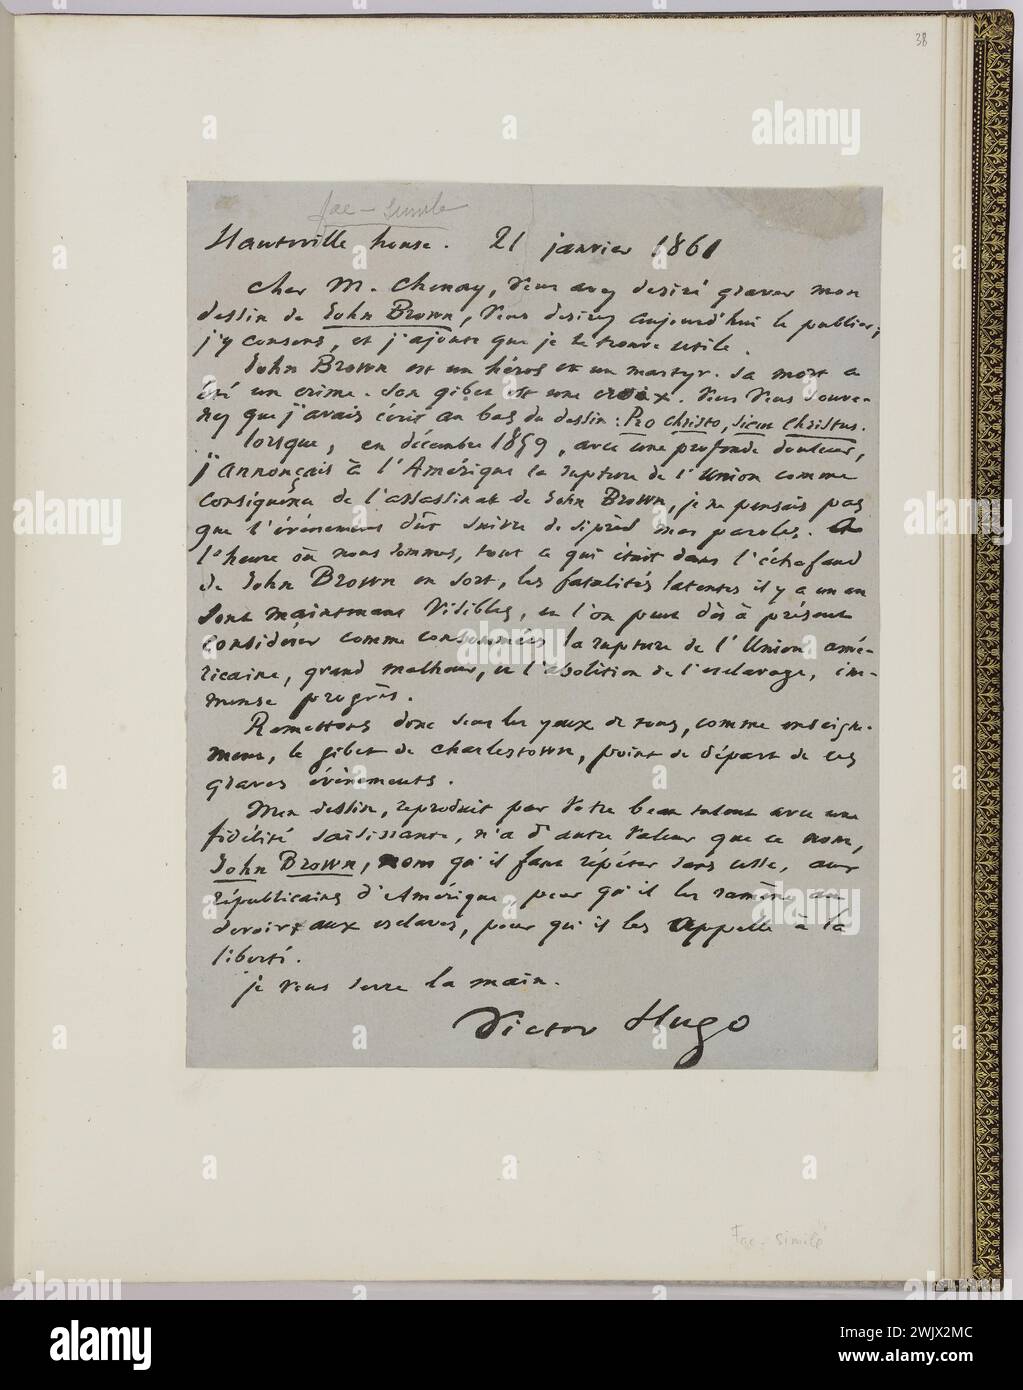 38
fac-simile
Hauteville house. 21 janvier 1861
Cher M. Chenay, vous avez désiré graver mon
dessin de John Brown, vous désirez aujourd'hui le publier;
j'y consens, et j'ajoute que je le trouve utile.
John Brown est un héros et un martyr. Sa mort a
été un crime. Son gibet est une croix. Vous vous souve-
nez que j'avais écrit au bas du dessin : Pro Christo, sicut Christus.
Lorsque, en décembre 1859, avec une profonde douleur,
j'annonçais à l'Amérique la rupture de l'Union comme
conséquence de l'assassinat de John Brown, je ne pensais pas
que l'événement dût suivre de si près mes paroles. A
l'heure où nous sommes, tout ce qui était dans l'échafaud
de John Brown en sort, les fatalités latentes il y a un an
sont maintenant visibles, et l'on peut dès à présent
considérer comme consommées la rupture de l'Union amé-
ricaine, grand malheur, et l'abolition de l'esclavage, im-
mense progrès.
Remettons donc sous les yeux de tous, comme enseigne-
ment, le gibet de Charlestown, point de départ de ces
graves événements.
Mon dessin, reproduit par votre beau talent avec une
fidélité saisissante, n'a d'autre valeur que ce nom,
John Brown, nom qu'il faut répéter sans cesse, aux
républicains d'Amérique, pour qu'il les ramène au
devoir, aux esclaves, pour qu'il les appelle à la
liberté.
je vous serre la main.
Victor Hugo
Fac-simile
alamy
Image ID: 2WJX2MC
www.alamy.com